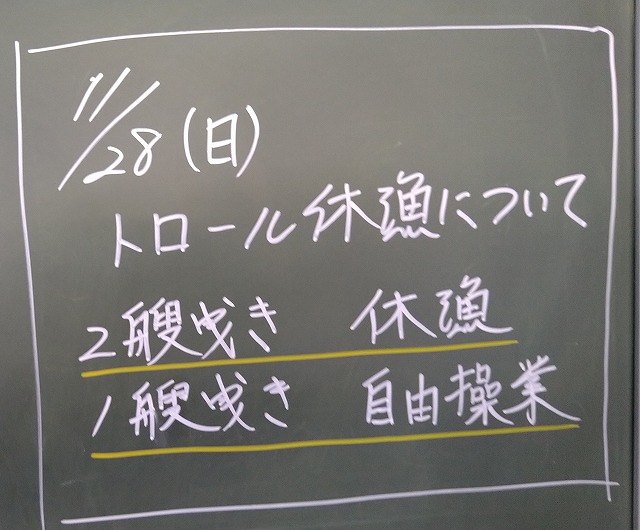 11/28(日)
トロール休漁について
2艘曳き 休漁
1艘曳き 自由操業